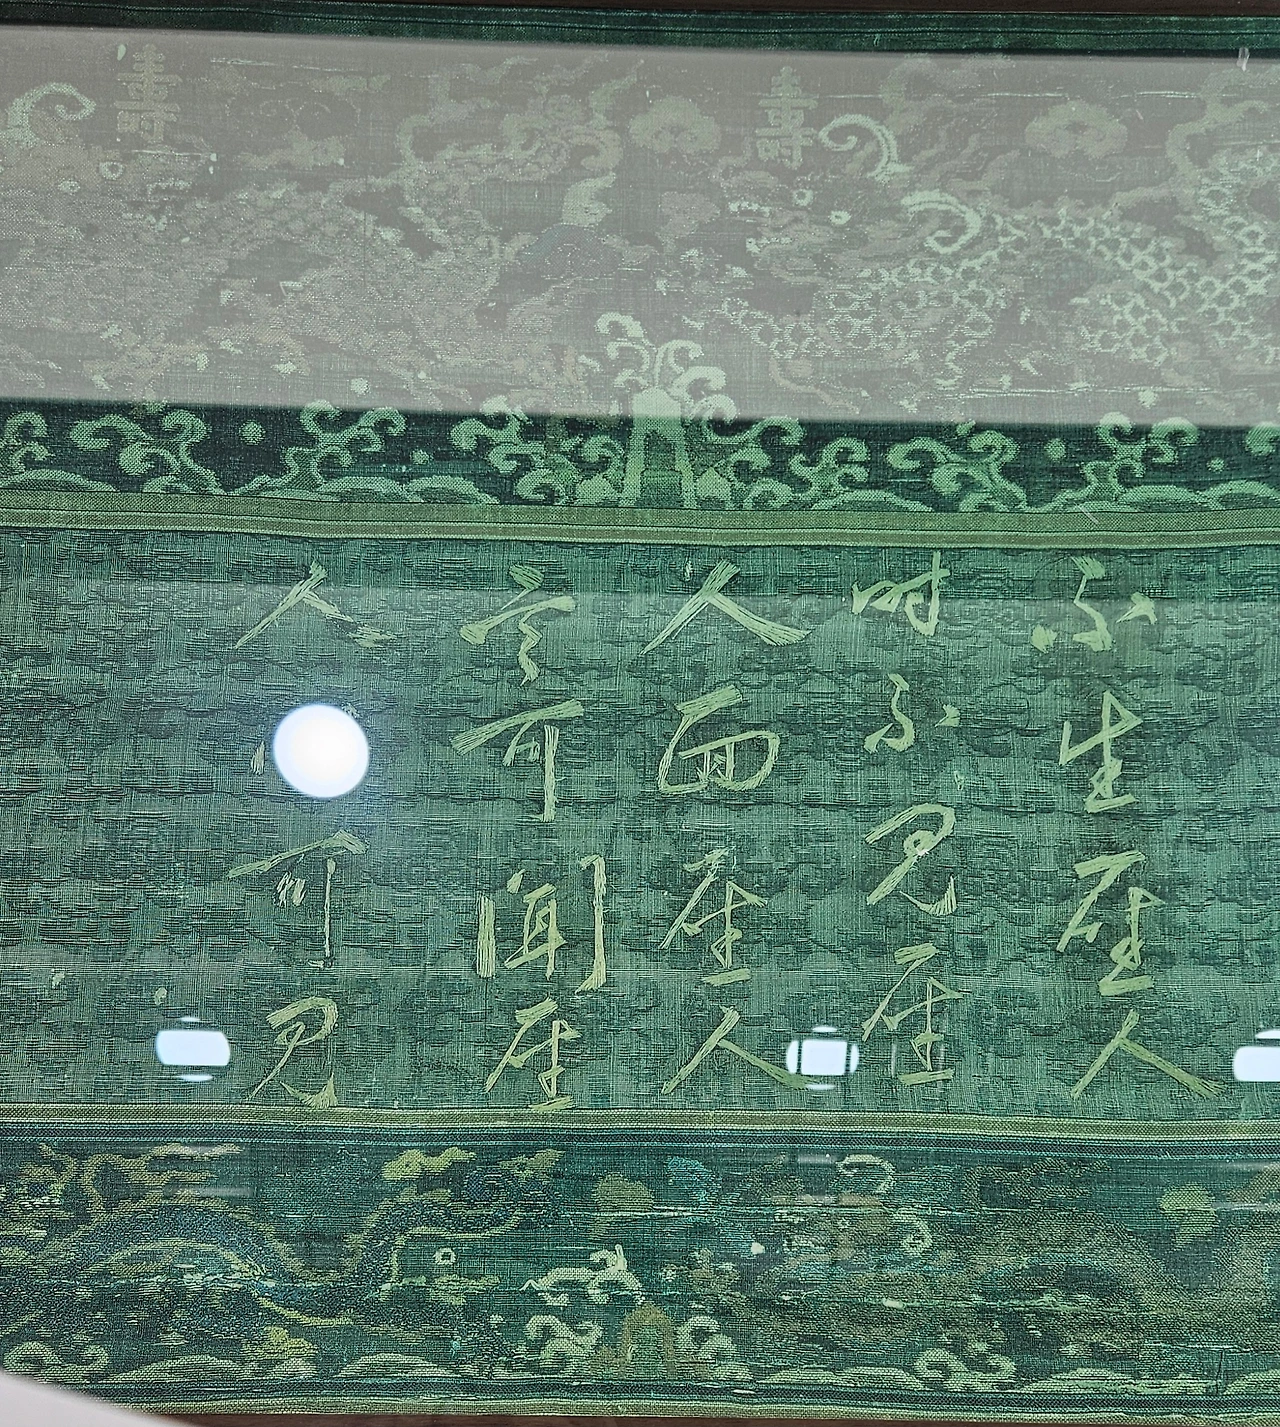 壽 壽
不生聖人
時不見聖
人面聖人
言可聞聖
人可見